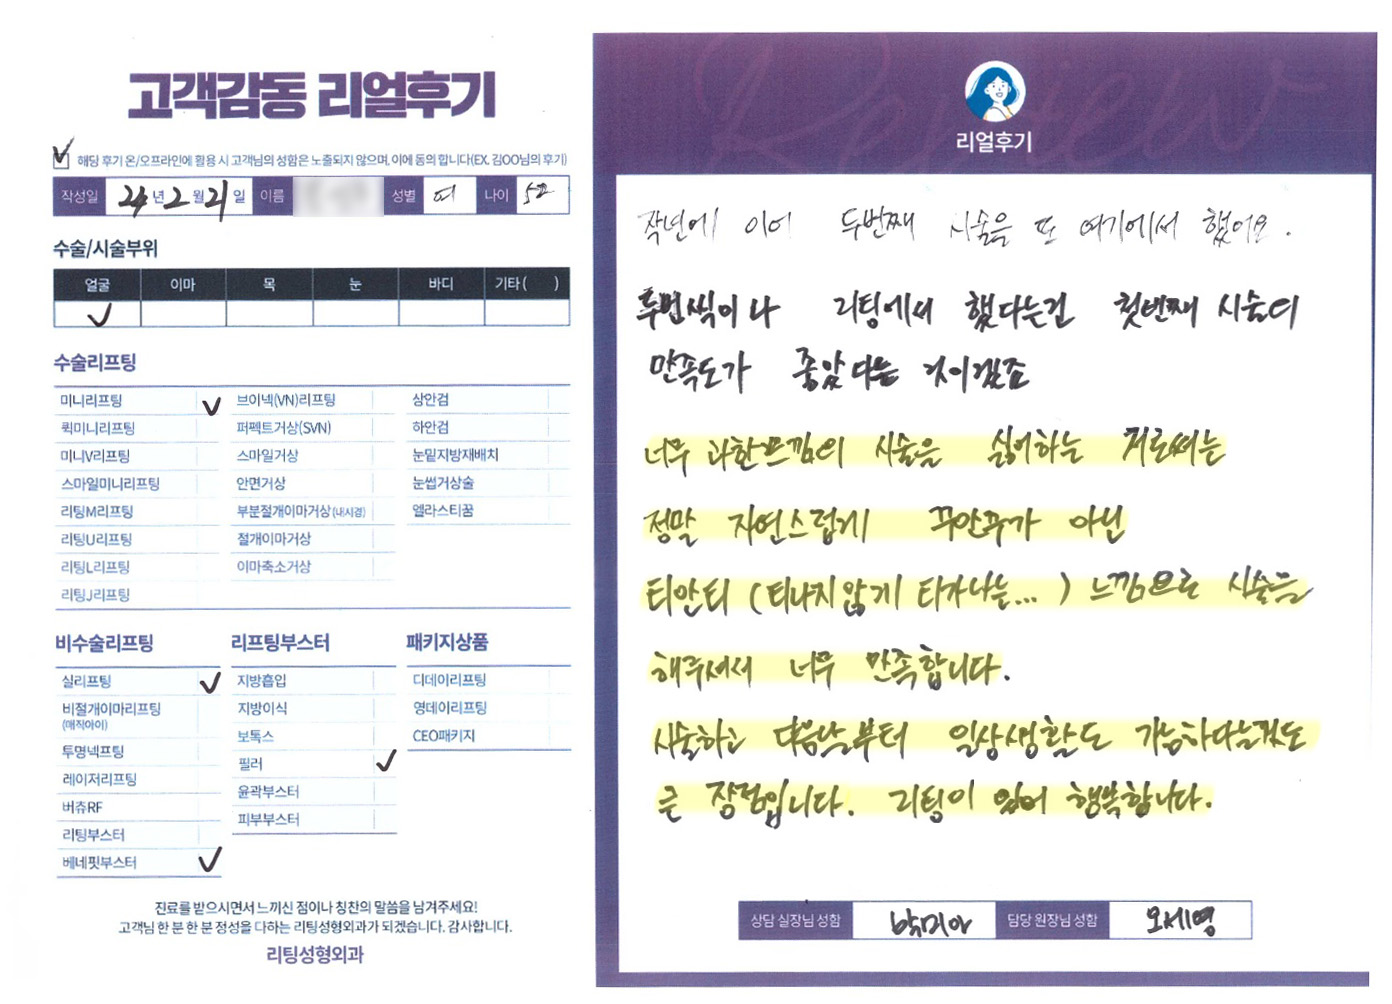 고객감동 리얼후기
해당 후기 온/오프라인에 활용 시 고객님의 성함은 노출되지 않으며, 이에 동의 합니다(EX. 김OO님의 후기)
작성일 24년 2월 21일 이름 성별 여 나이 52
수술/시술부위
얼굴 이마 목 눈 바디 기타( )
수술리프팅
미니리프팅 브이넥(VN)리프팅 상안검
퀵미니리프팅 퍼펙트거상(SVN) 하안검
미니V리프팅 스마일거상 눈밑지방재배치
스마일미니리프팅 안면거상 눈썹거상술
리팅M리프팅 부분절개이마거상(내시경) 엘라스티꿈
리팅U리프팅 절개이마거상
리팅L리프팅 이마축소거상
리팅J리프팅
비수술리프팅 리프팅부스터 패키지상품
실리프팅 지방흡입 디데이리프팅
비절개이마리프팅 지방이식 영데이리프팅
(매직아이)
보톡스 CEO패키지
투명넥프팅 필러
레이저리프팅 윤곽부스터
버츄RF 피부부스터
리팅부스터
베네핏부스터
진료를 받으시면서 느끼신 점이나 칭찬의 말씀을 남겨주세요!
고객님 한 분 한 분 정성을 다하는 리팅성형외과가 되겠습니다. 감사합니다.
리팅성형외과
Review
리얼후기
작년에 이어 두번째 시술을 또 여기에서 했어요.
두번씩이나 리팅에서 했다는건 첫번째 시술의
만족도가 좋았다는 것이겠죠
너무 과한느낌의 시술은 싫어하는 저로써는
정말 자연스럽게 꾸안꾸가 아닌
티안티 (티나지않게 티가나는...) 느낌으로 시술을
해주셔서 너무 만족합니다.
시술하고 다음날부터 일상생활도 가능하다는것도
큰 장점입니다. 리팅이 있어 행복합니다.
상담 실장님 성함 박미아 담당 원장님 성함 오세영